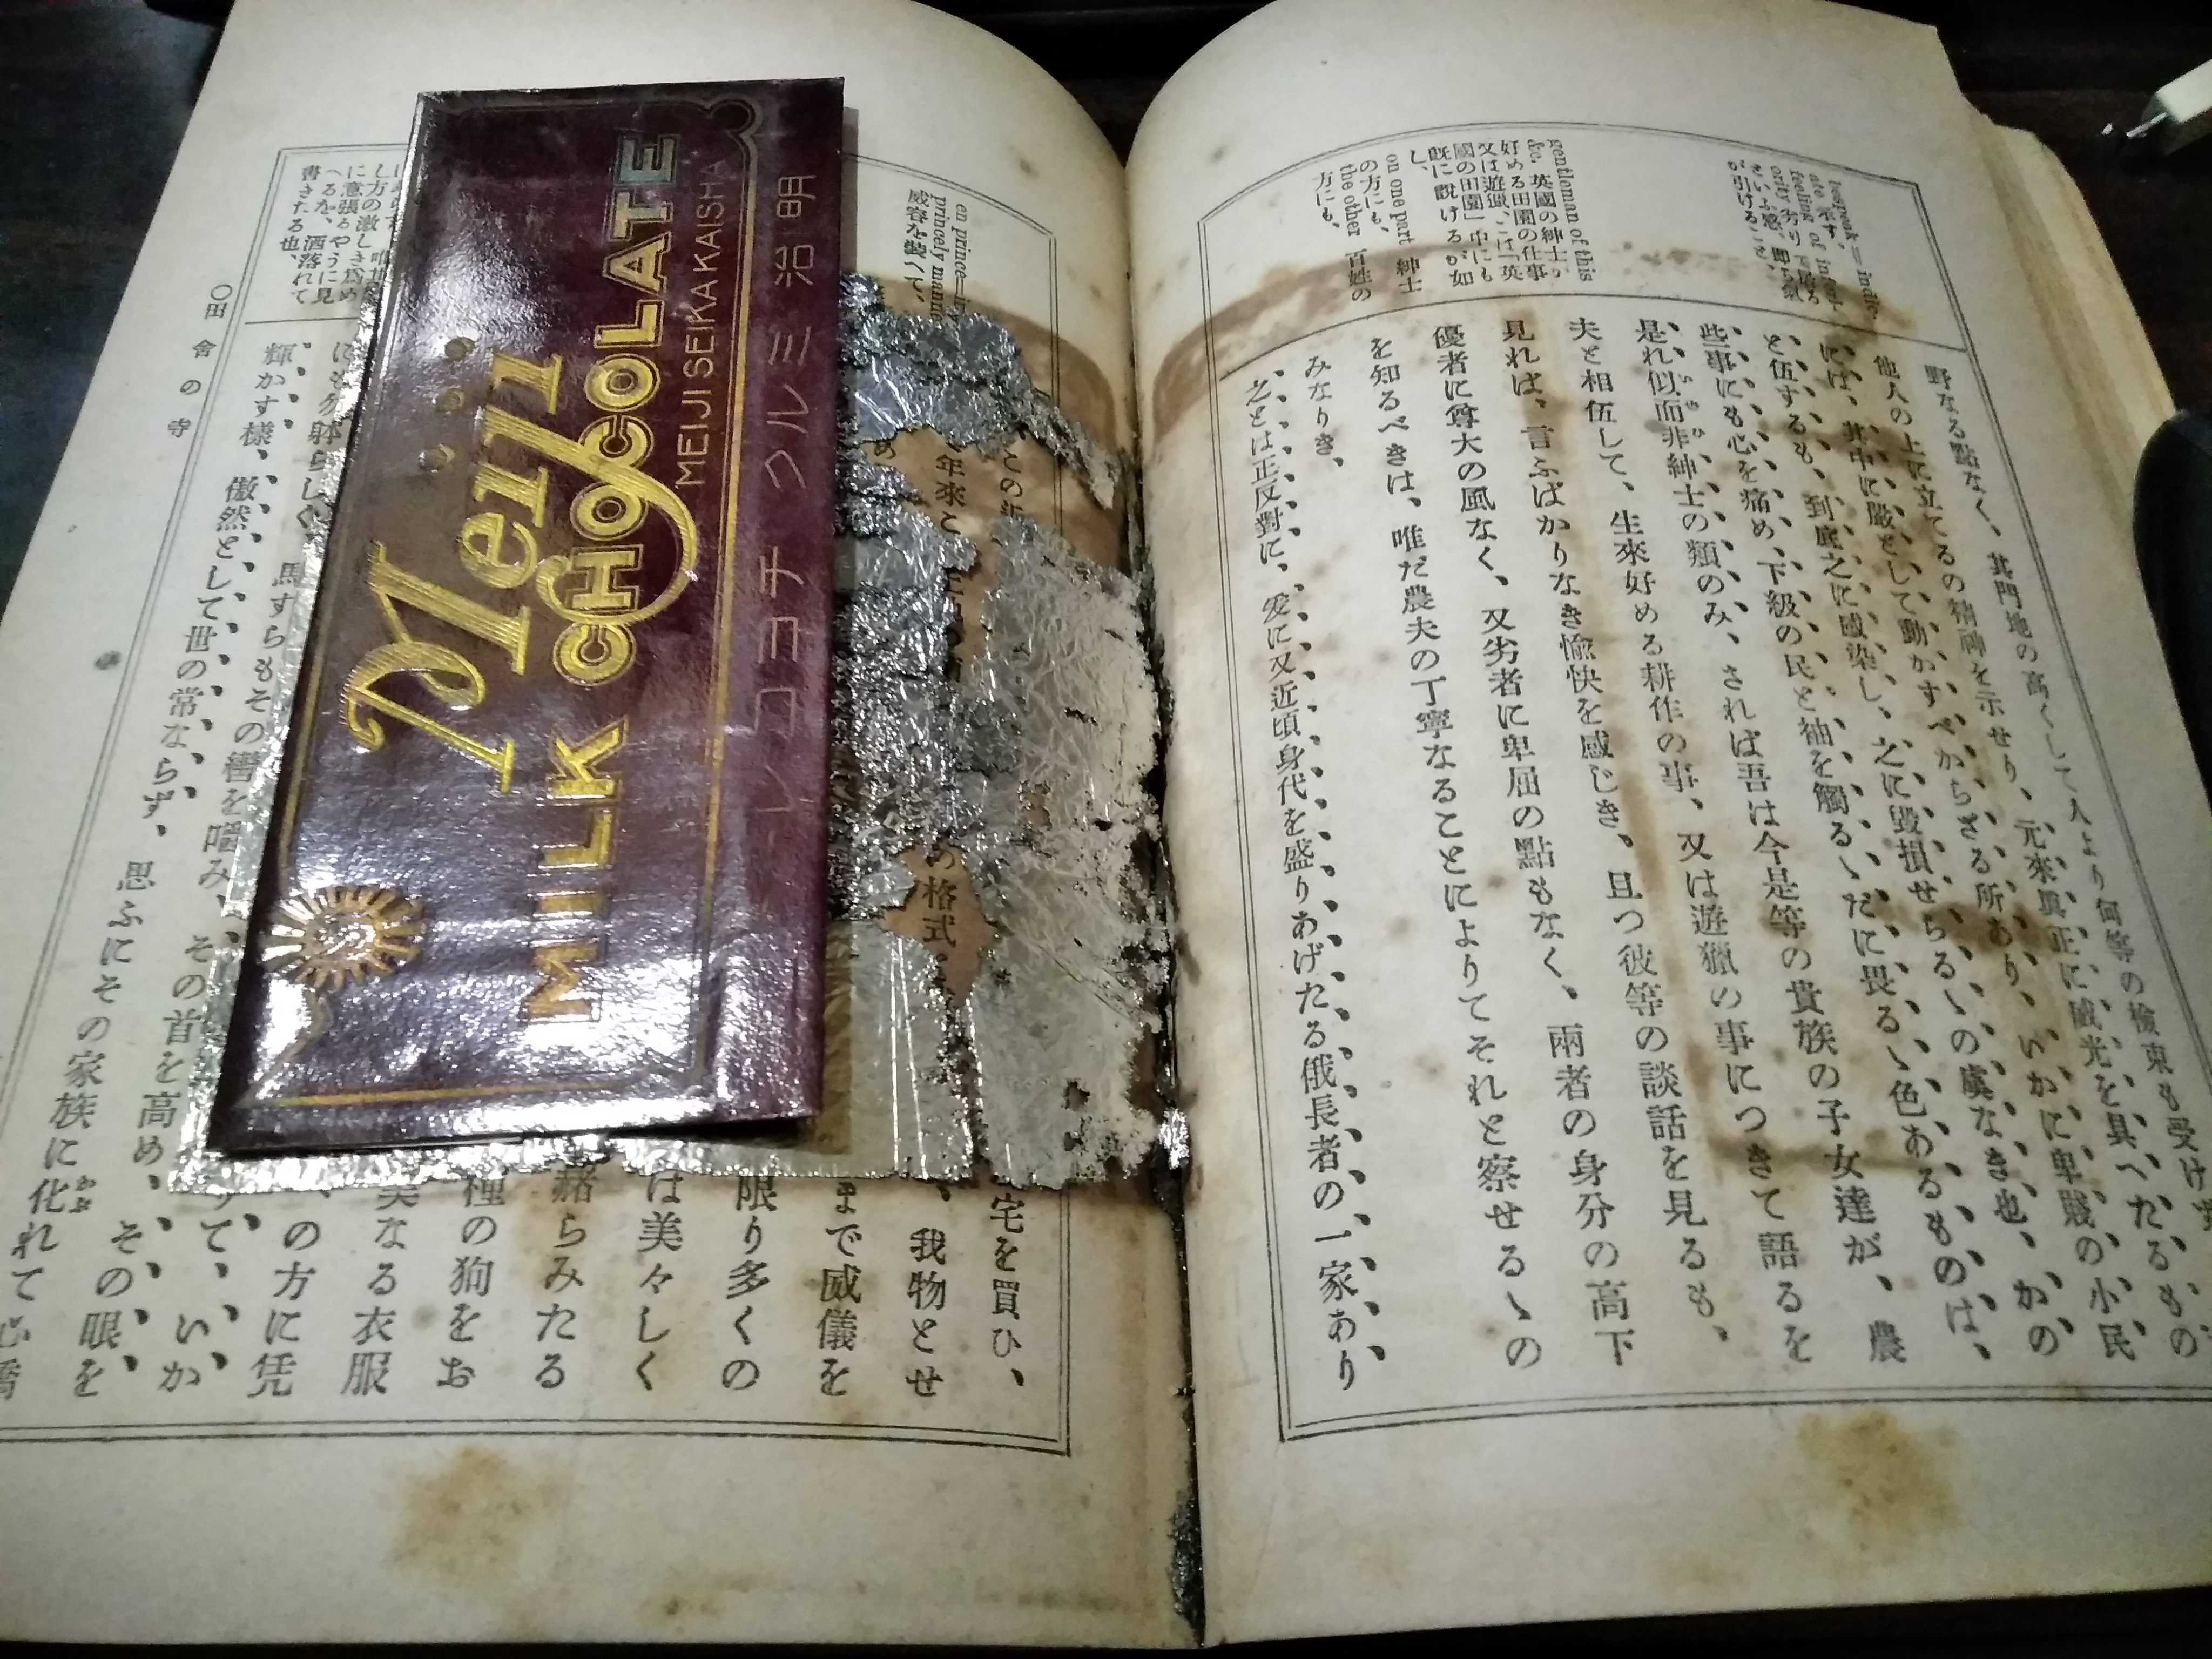 bespeak＝indic-
ate 示す。
feeling of inferi-
ority 劣り居る
gentleman of this
&c. 英國の紳士が
好める田園の仕事
又は遊獵、こは「英
國の田園」中にも
既に說けるが如
し、
on one part 紳士
の方にも、
the other 百姓の
方にも、
野なる點なく、其門地の高くして人より何等の檢束も受けず
他人の上に立てるの精神を示せり、元來眞正に威光を具へたるもの
には、其中に嚴として動かすべからざる所あり、いかに卑賤の小民
と伍するも、到底之に感染し、之に毀損せらるゝの虞なき也、かの
些事にも心を痛め、下級の民と袖を觸るゝだに畏るゝ色あるものは、
是れ似而非紳士の類のみ、されば吾は今是等の貴族の子女達が、農
夫と相伍して、生來好める耕作の事、又は遊獵の事につきて語るを
見れば、言ふばかりなき愉快を感じき、且つ彼等の談話を見るも、
優者に尊大の風なく、又劣者に卑屈の點もなく、兩者の身分の高下
を知るべきは、唯だ農夫の丁寧なることによりてそれと察せるゝの
みなりき、
之とは正反對に、爰に又近頃身代を盛りあげたる俄長者の一家あり
en prince＝in
princely manner
威容を裝へて、
宅を買ひ、
年來こ
、我物とせ
の格式
まで威儀を
限り多くの
は美々しく
赭らみたる
種の狗をお
美なる衣服
の方に凭
て、いか
にも勿躰らしく、馬すらもその轡を嚙み、その首を高め、その眼を
輝かす樣、傲然として世の常ならず、思ふにその家族に化れて心驕
し方の激しき爲め
に意張るやうに見
へるを、洒落れて
書きたる也、
〇田舍の寺
Meiji
MILK CHOCOLATE
MEIJI SEIKA KAISHA
明治ミルクチョコレート